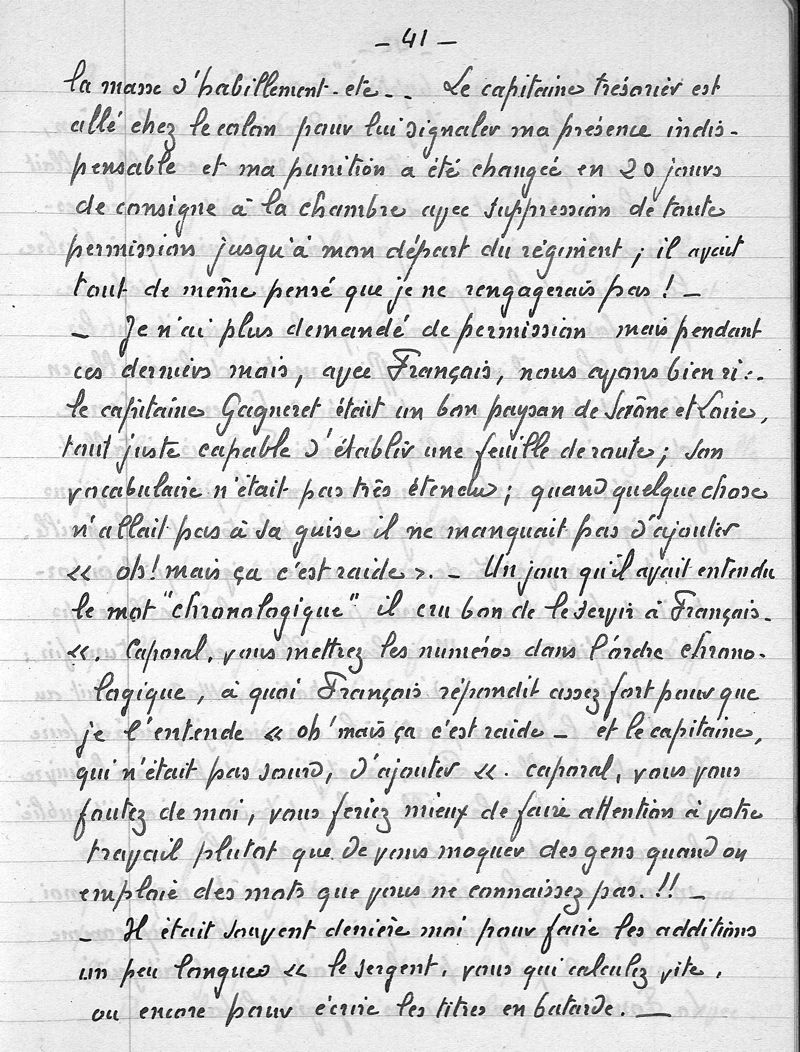 - 41 -
la masse d'habillement - etc - - Le capitaine trésorier est
allé chez le colon pour lui signaler ma présence indis-
pensable et ma punition a été changée en 20 jours
de consigne à la chambre avec suppression de toute
permission jusqu'à mon départ du régiment ; il avait
tout de même pensé que je ne rengagerais pas ! -
- Je n'ai plus demandé de permission mais pendant
ces derniers mois, avec Français, nous avons bien ri :.
le capitaine Gagneret était un bon paysan de Saône et Loire,
tout juste capable d'établir une feuille de route ; son
vocabulaire n'était pas très étendu ; quand quelque chose
n'allait pas à sa guise il ne manquait pas d'ajouter
« oh ! mais ça c'est raide ». - Un jour qu'il avait entendu
le mot "chronologique" il cru bon de le servir à Français.
«. Caporal, vous mettrez les numéros dans l'ordre chrono-
logique, à quoi Français répondit assez fort pour que
je l'entende « oh ' mais ça c'est raide - et le capitaine,
qui n'était pas sourd, d'ajouter «. caporal, vous vous
foutez de moi, vous feriez mieux de faire attention à votre
travail plutot que de vous moquer des gens quand on
emploie des mots que vous ne connaissez pas. !! -
- Il était souvent derrière moi pour faire les additions
un peu longues « le sergent, vous qui calculez vite,
ou encore pour écrire les titres en batarde. -